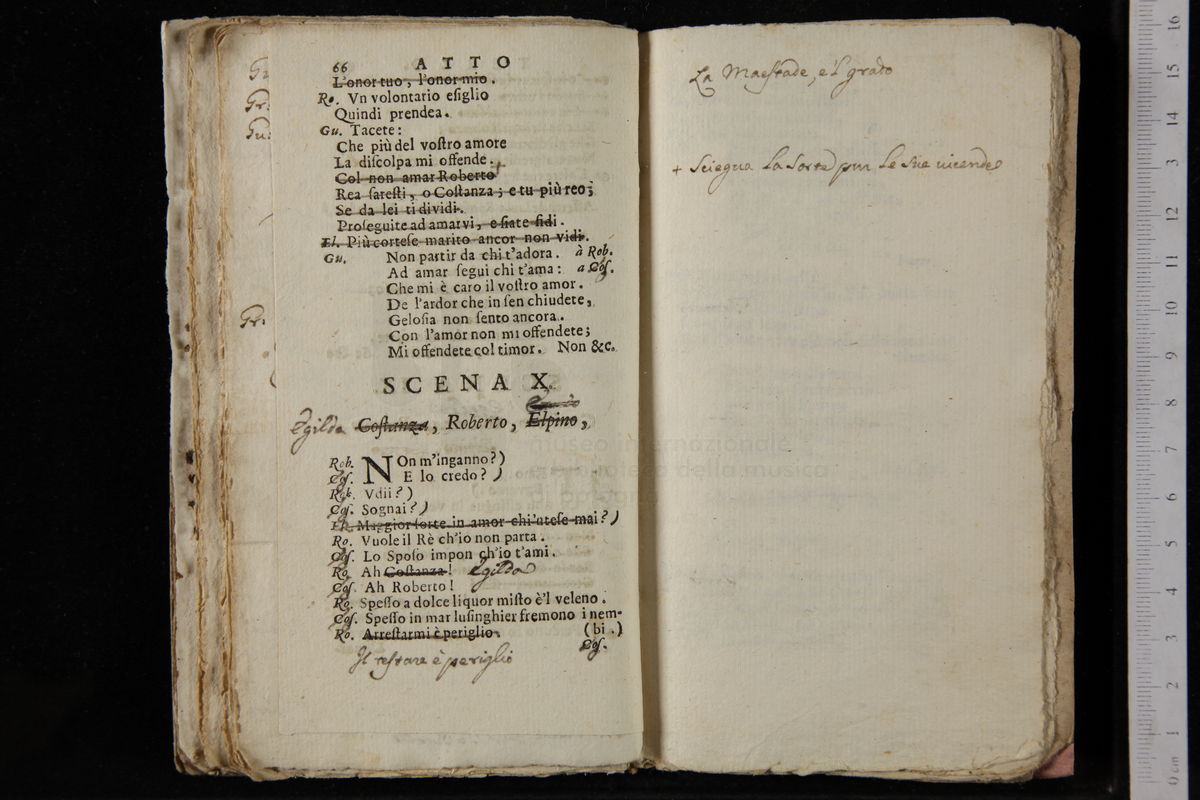 Gr.
Gr.
Gu.
Gr.
66 ATTO
L'onor tuo, l'onor mio.
Ro. Vn volontario esiglio
Quindi prendea.
Gu. Tacete:
Che più del vostro amore
La discolpa mi offende. +
Col non amar Roberto
Rea saresti, o Costanza; e tu più reo;
Se da lei ti dividi.
Proseguite ad amarvi, e siate fidi.
El. Più cortese marito ancor non vidi.
Gu. Non partir da chi t'adora. à Rob.
Ad amar segui chi t'ama: a Cos.
Che mi è caro il vostro amor.
De l'ardor che in sen chiudete,
Gelosia non sento ancora.
Con l'amor non mi offendete;
Mi offendete col timor. Non &c.
SCENA X.
Egilda Costanza, Roberto, Elpino,
Rob. NOn m'inganno?)
Cos. E lo credo?)
Rob. Vdii?)
Cos. Sognai?)
El. Maggior sorte in amor chi'ntese mai?)
Ro. Vuole il Rè ch'io non parta.
Cos. Lo Sposo impon ch'io t'ami.
Ro. Ah Costanza! Egilda
Cos. Ah Roberto!
Ro. Spesso a dolce liquor misto è'l veleno.
Cos. Spesso in mar lusinghier fremono i nem-
Ro. Arrestarmi è periglio. (bi.)
Cos.
Il restare è periglio
La Maestade, e'l grado
+ Sciegua La Sorte pur Le Sue vicende
museo internazionale
biblioteca della musica
di bologna
0 cm 1 2 3 4 5 6 7 8 9 10 11 12 13 14 15 16